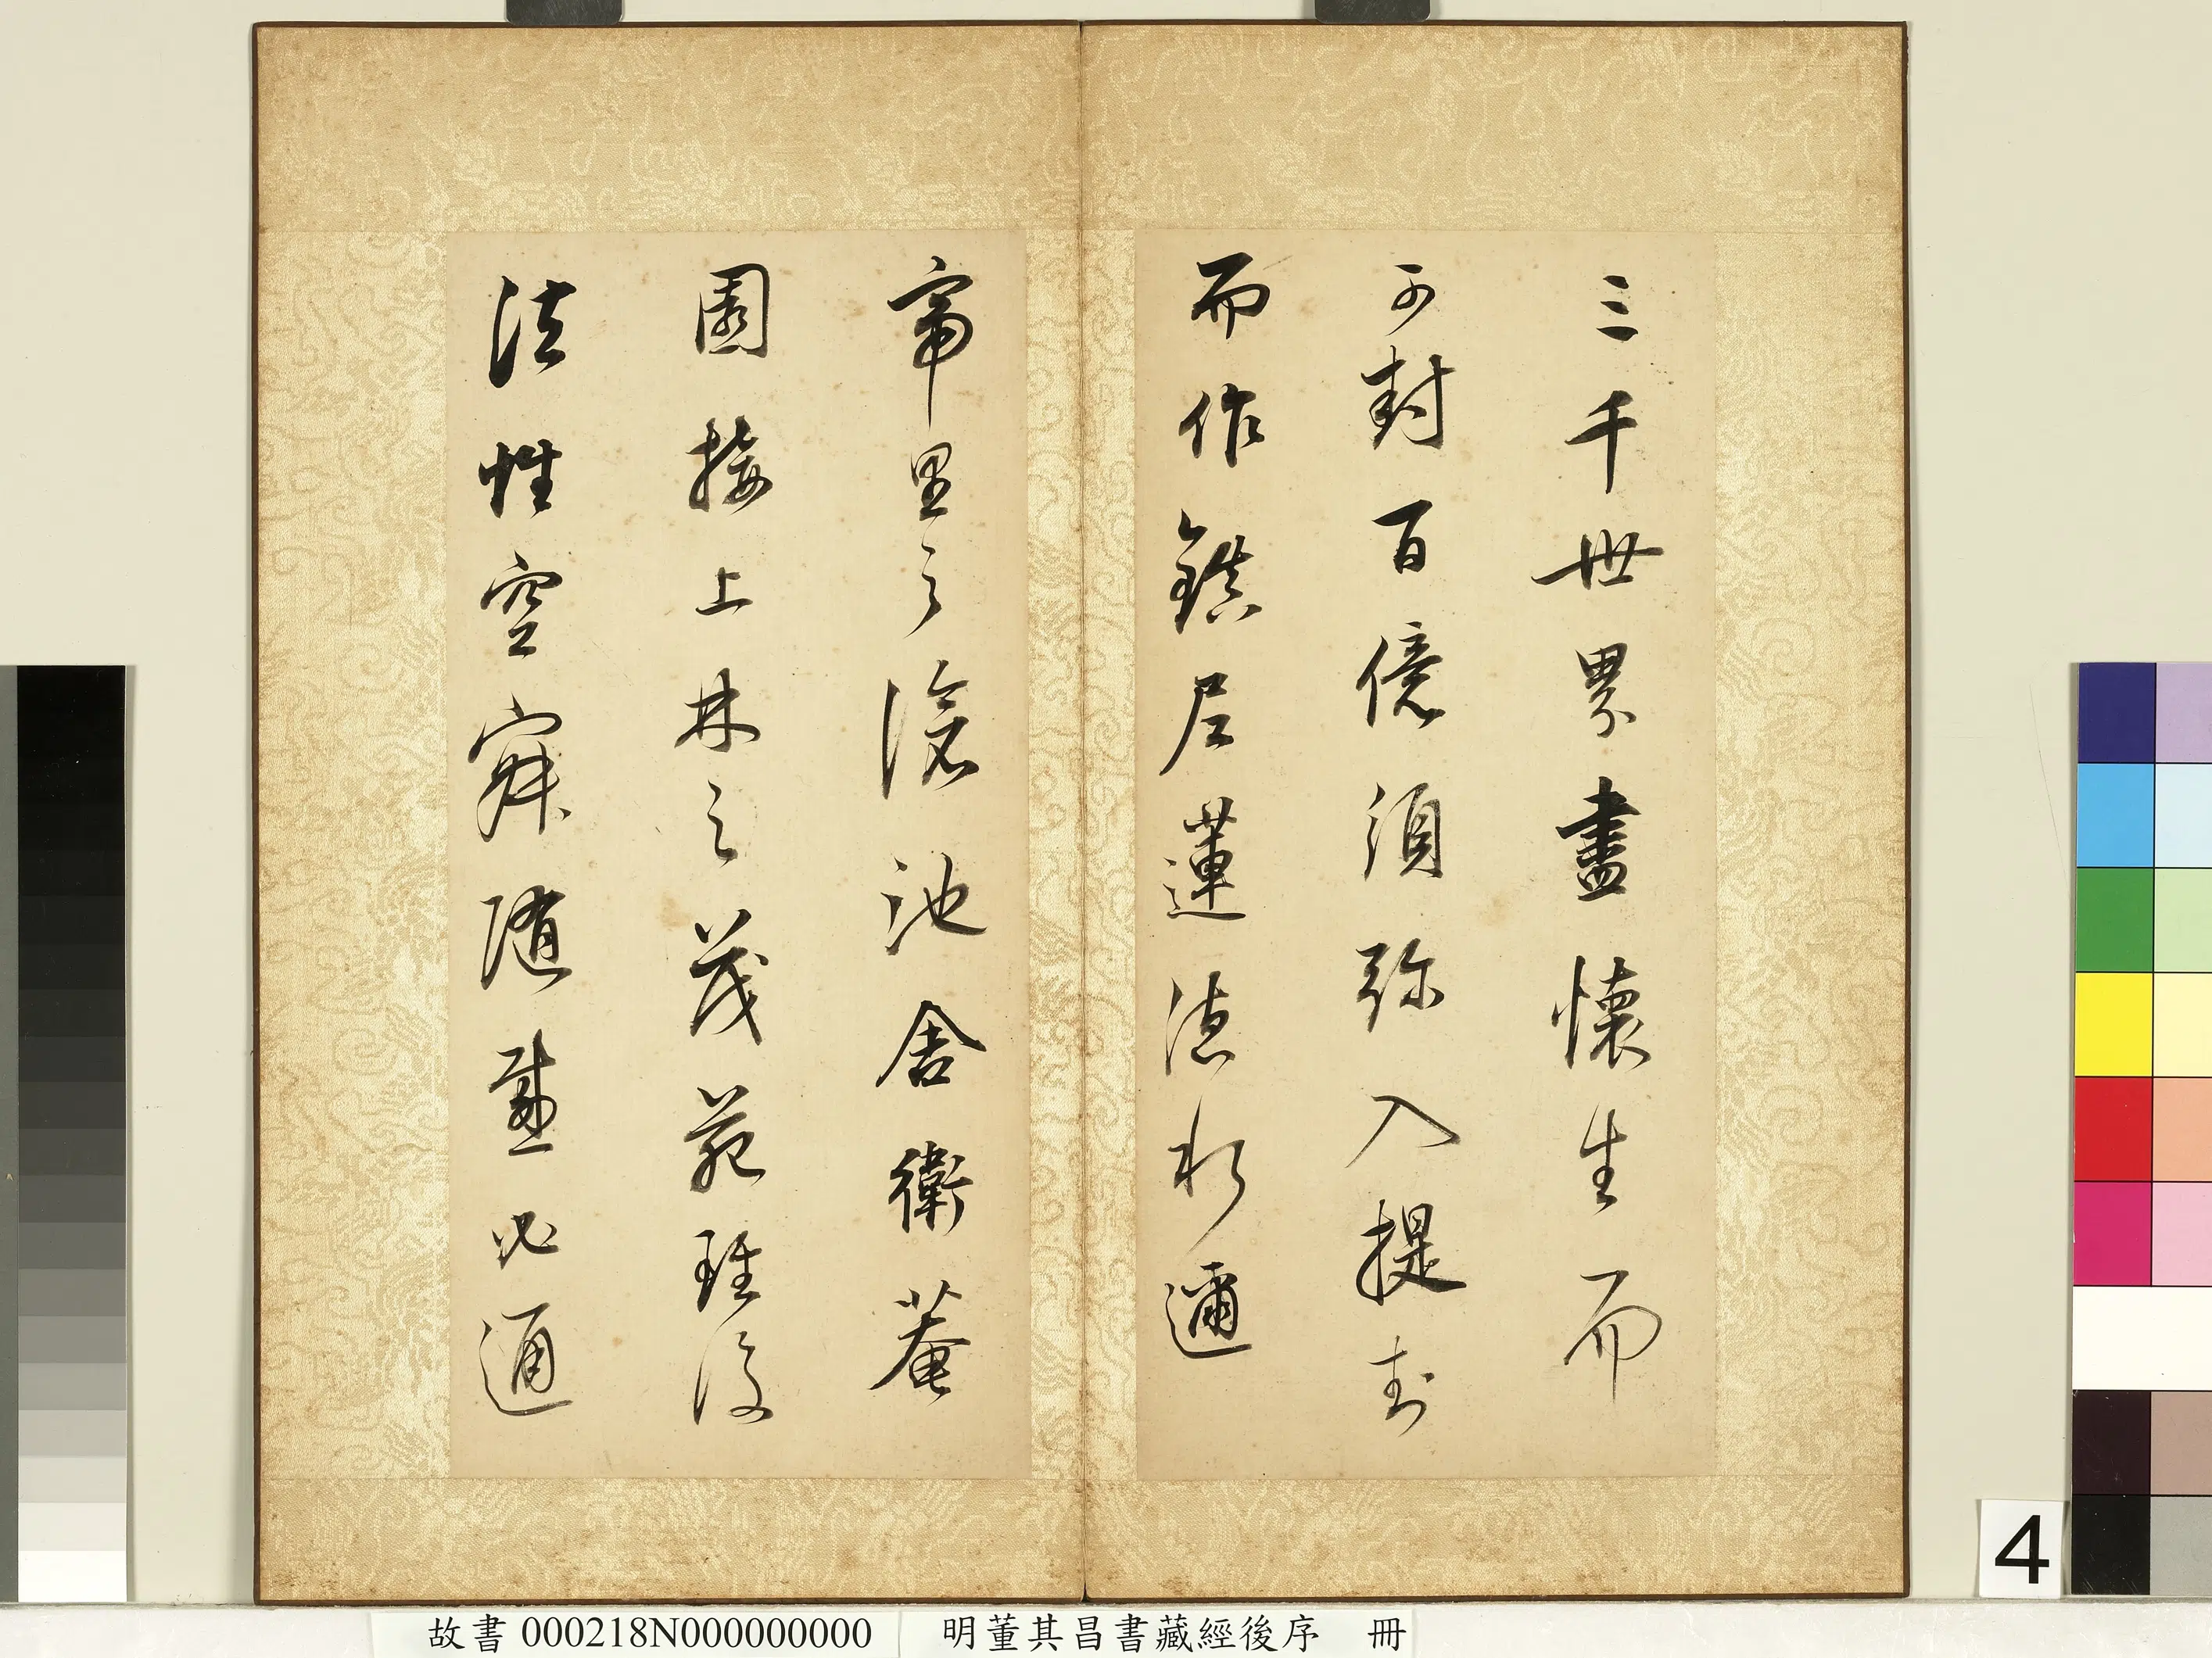 三千世界盡懷生而
可封百億須弥入提封
而作鎮尼蓮德水邇
帝里之滄池舍衛菴
園接上林之茂苑雖復
法性空寂隨感必通
4
故書000218N000000000 明董其昌書藏經後序 冊